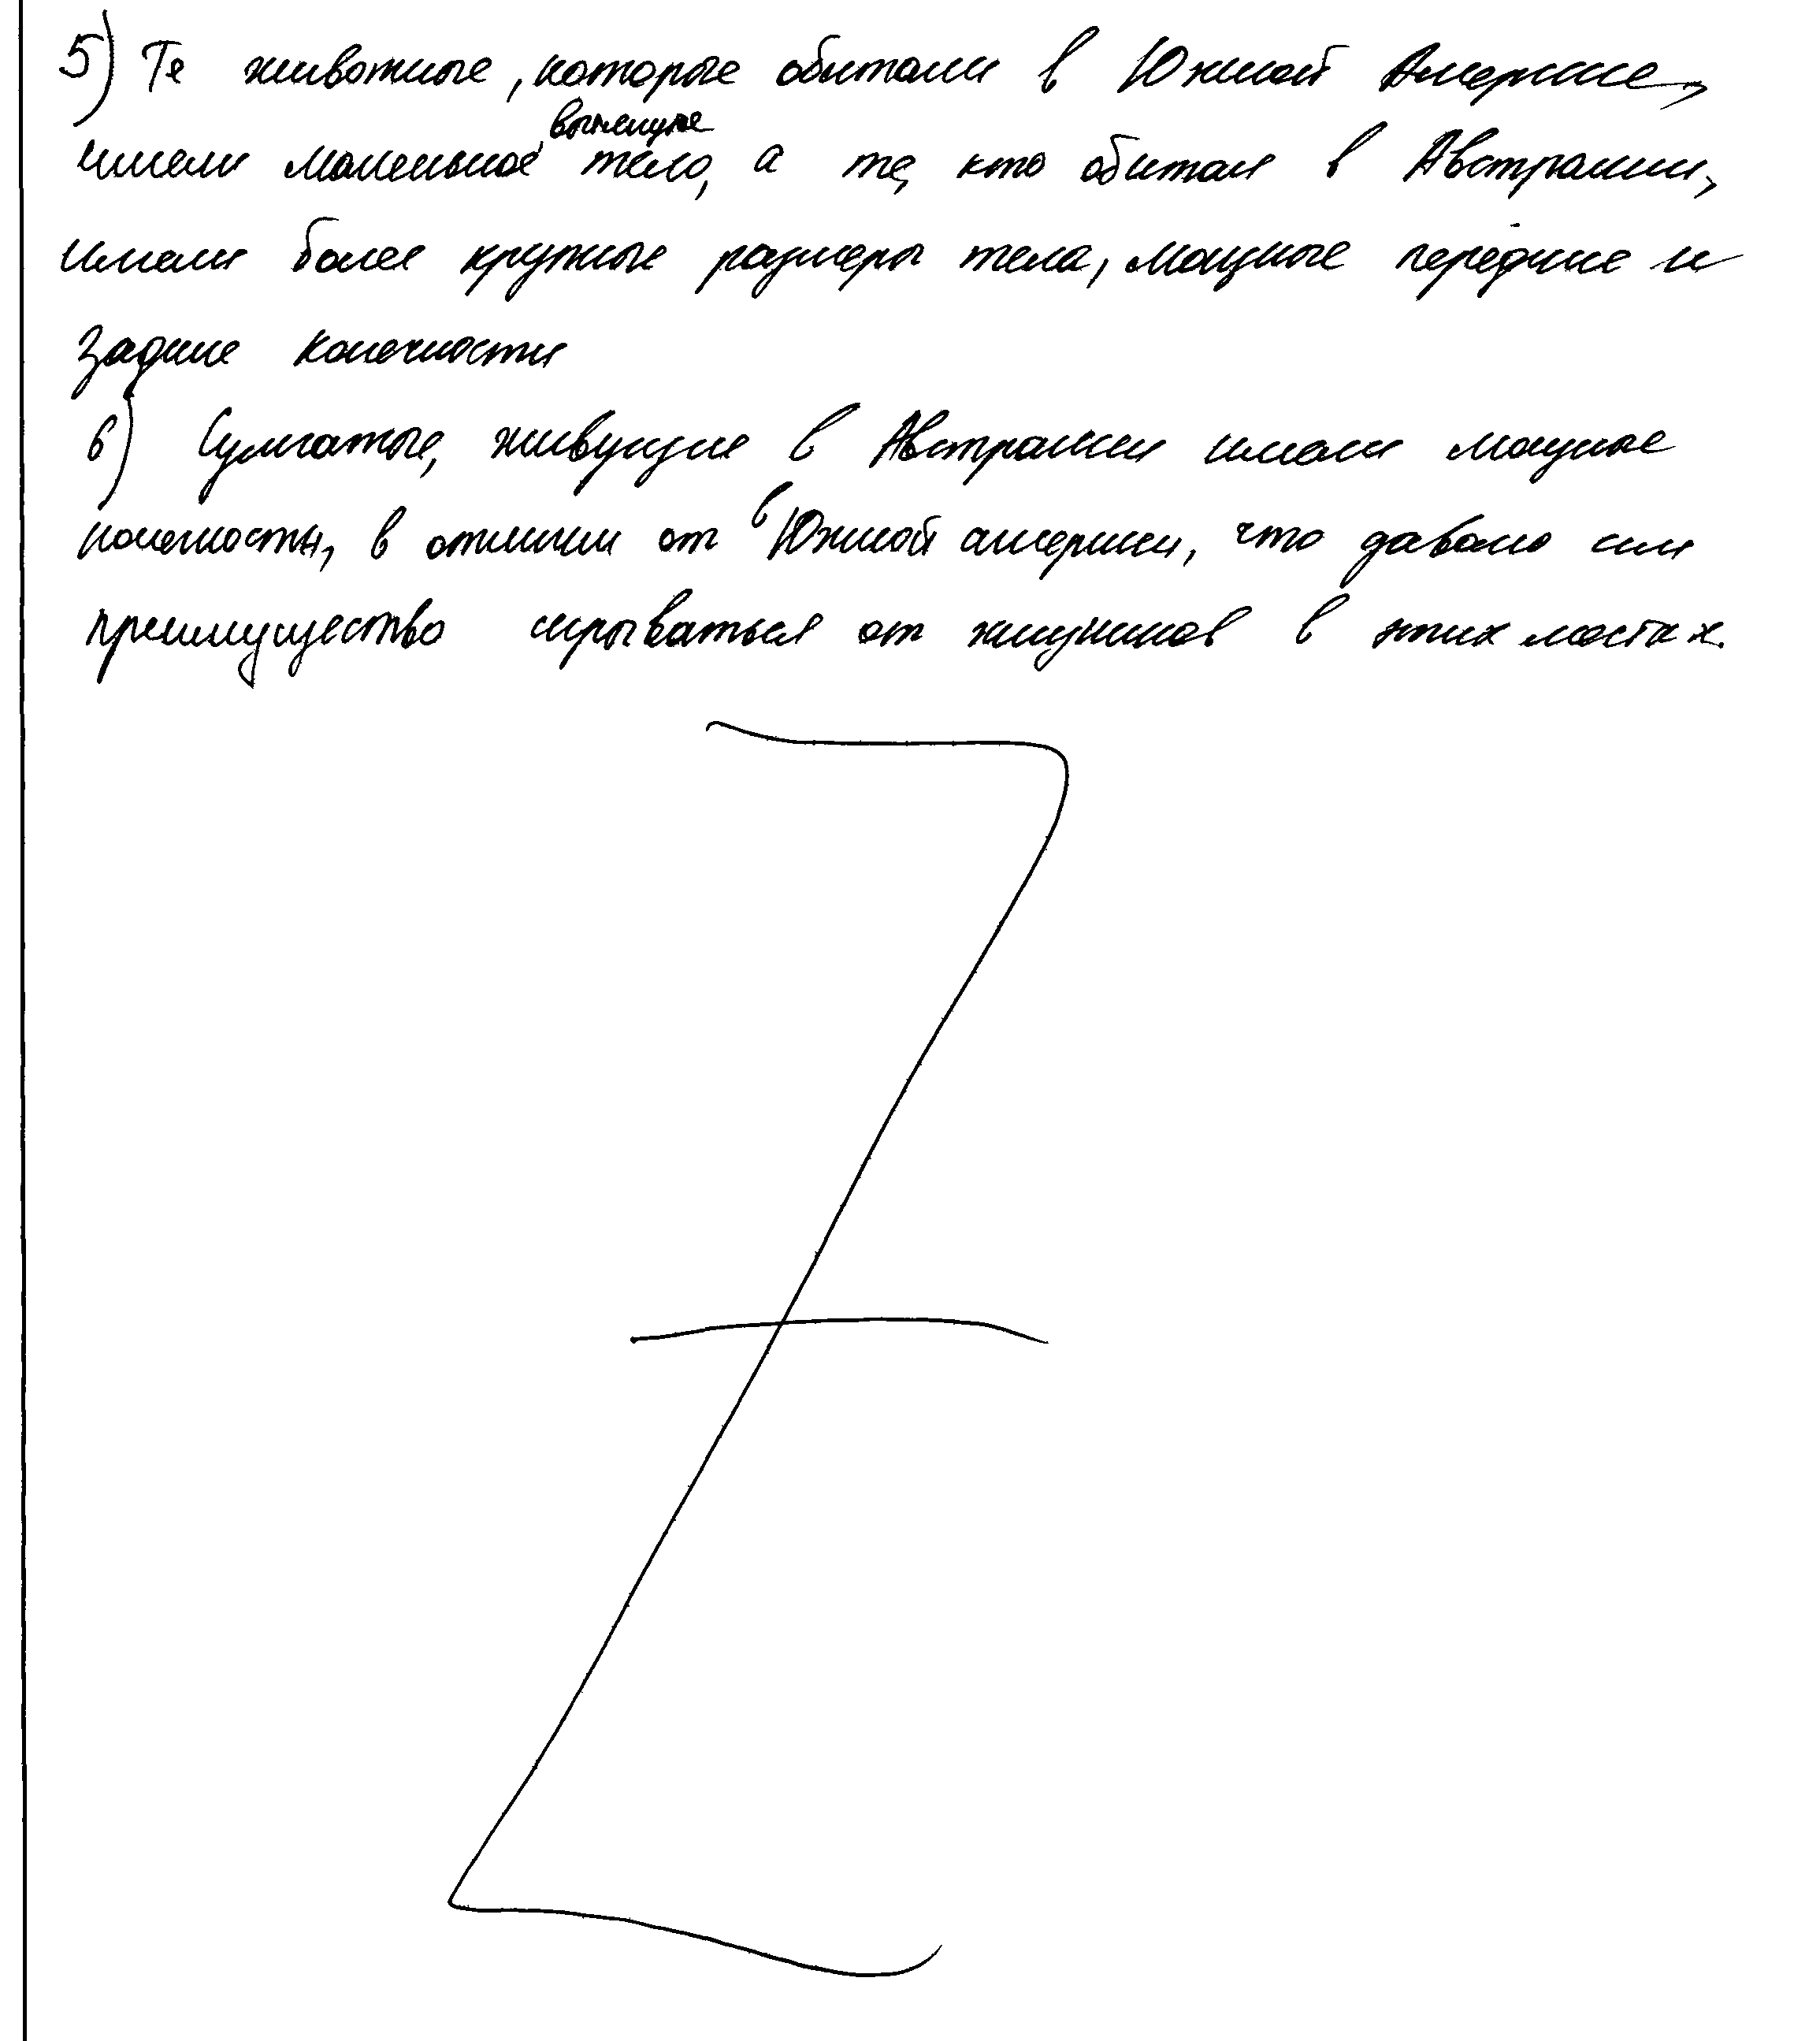 5) Те животные, которые обитали в Южной Америке,
имели маленькое, вытянутое тело, а те, кто обитал в Австралии,
имели более крупные размеры тела, мощные передние и
задние конечности
6) Сумчатые, живущие в Австралии имели мощные
конечности, в отличии от в Южной америки, что давало им
преимущество скрываться от хищников в этих местах.